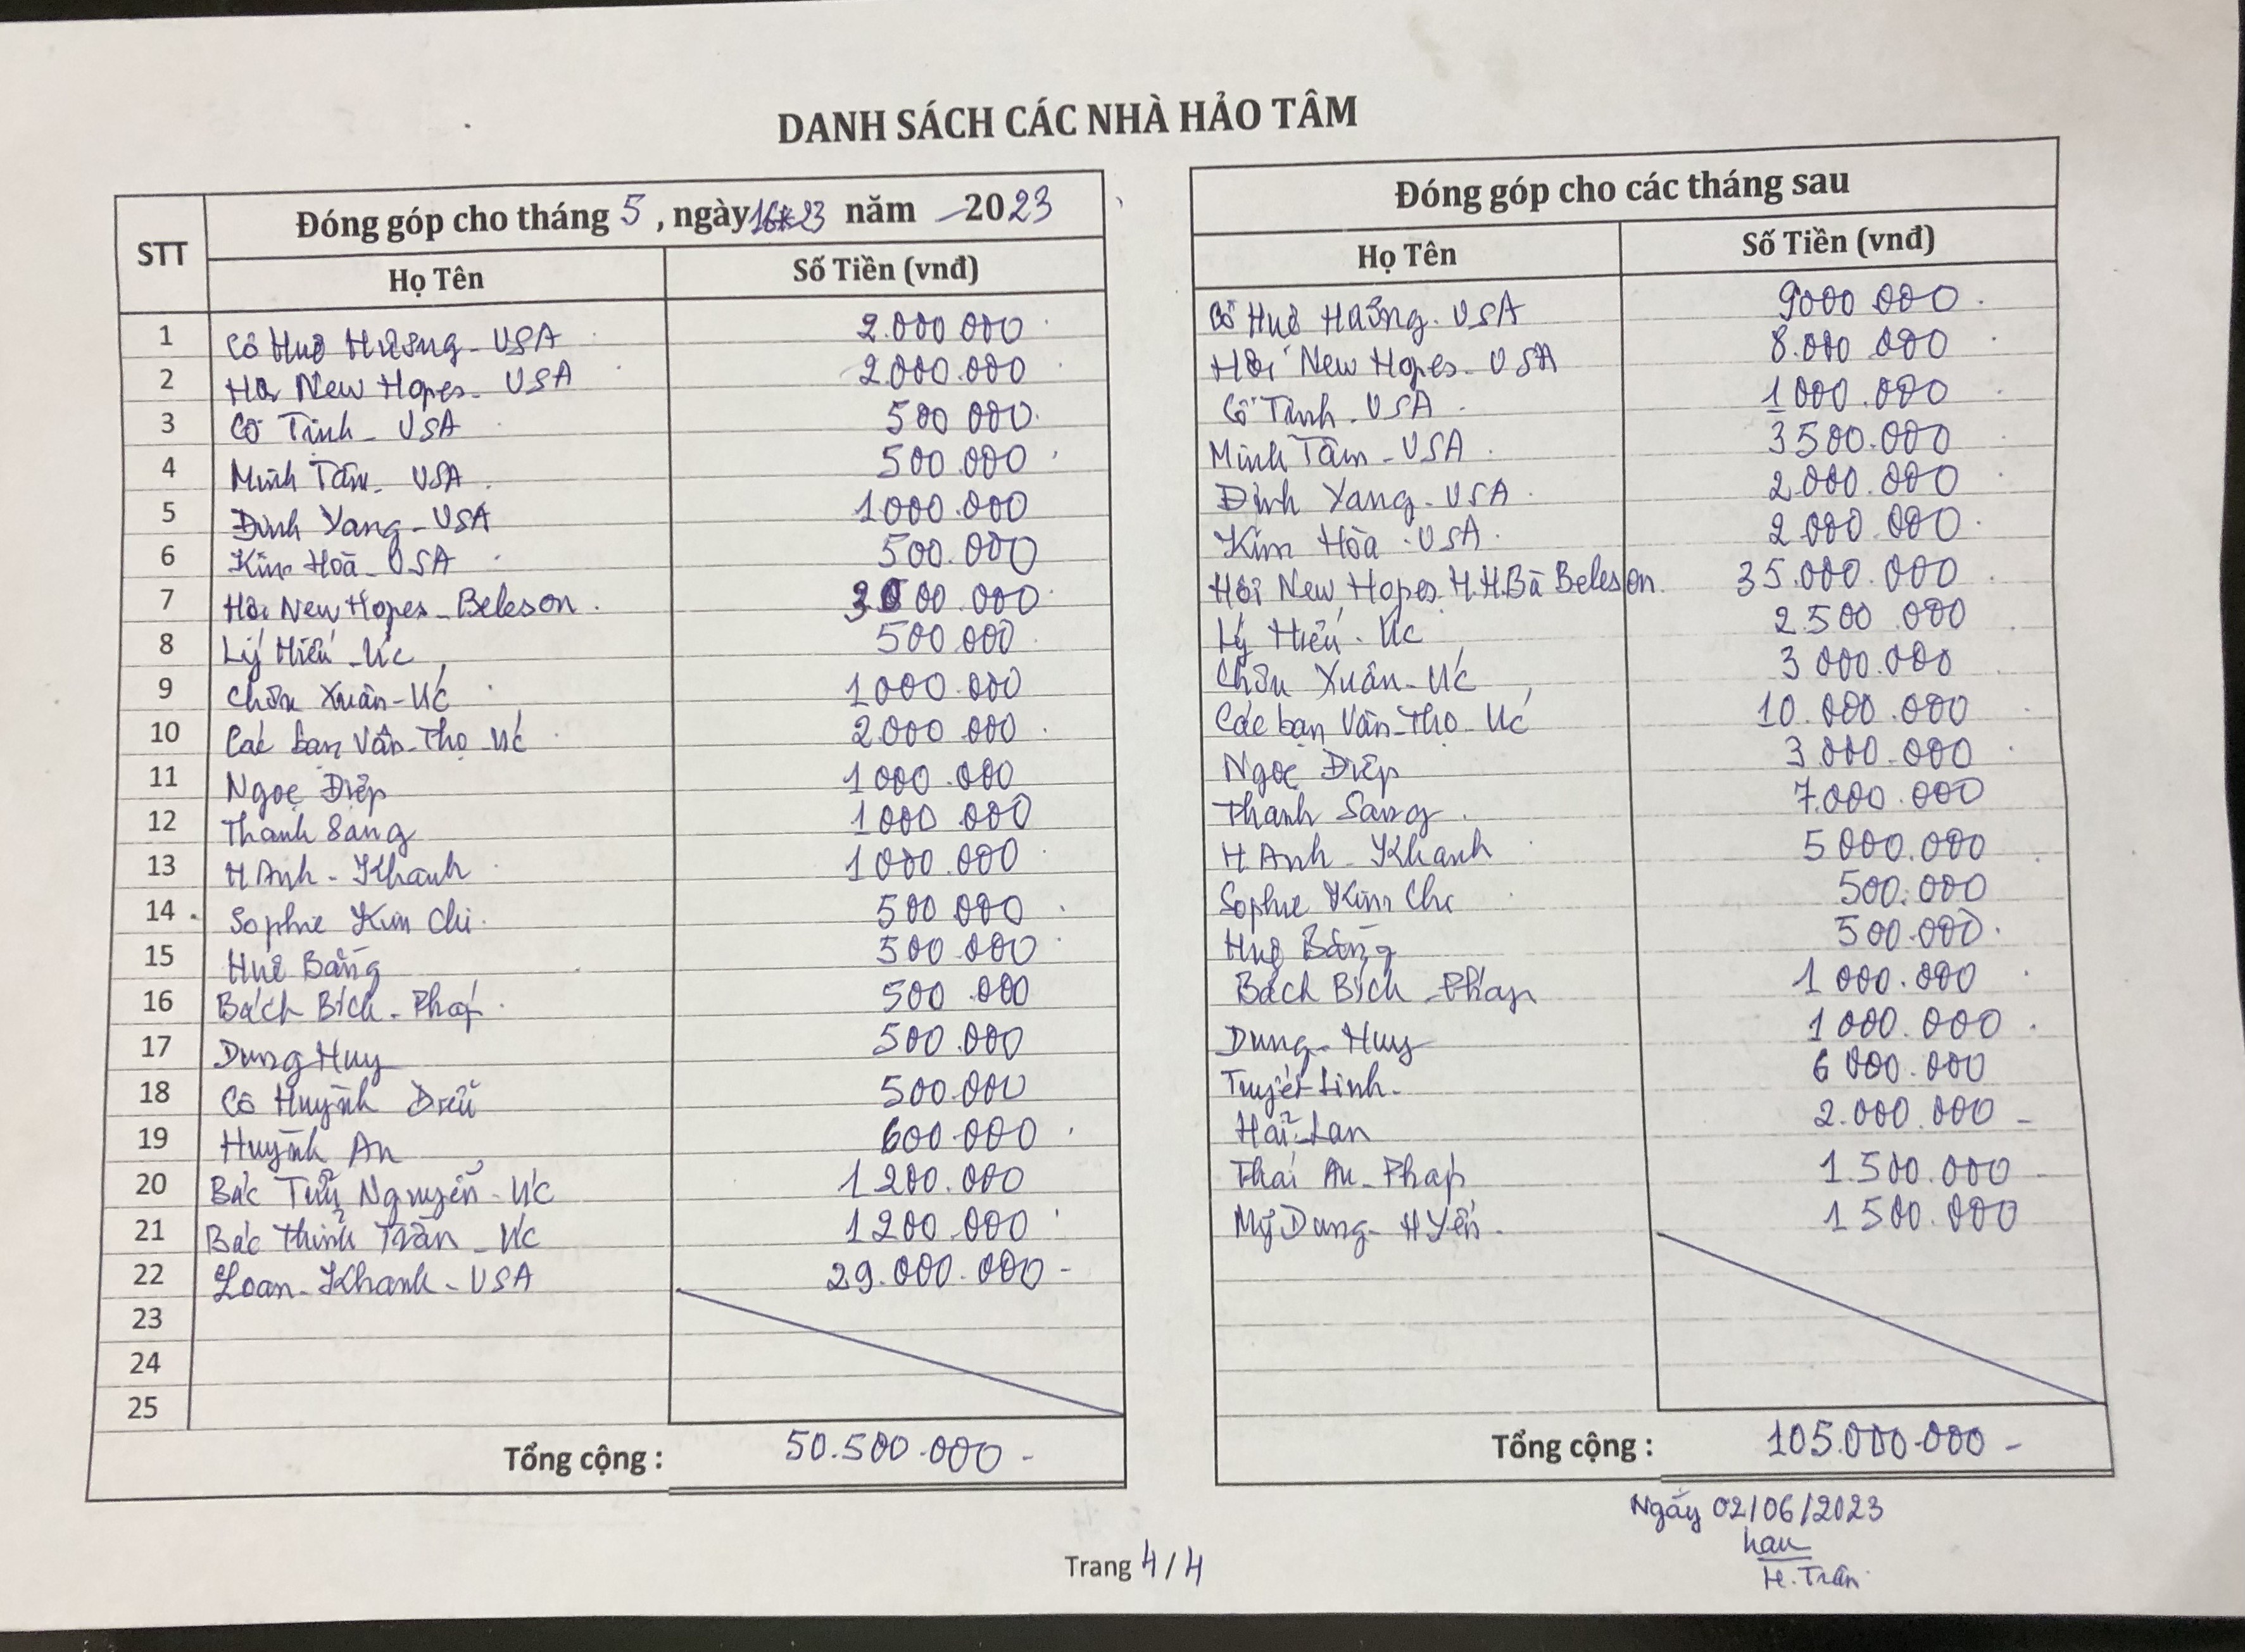 DANH SÁCH CÁC NHÀ HẢO TÂM
STT
Đóng góp cho tháng 5 , ngày 16+23 năm 2023
Họ Tên Số Tiền (vnđ)
1 Cô Huệ Hương - USA 2.000 000
2 Hội New Hopes - USA 2.000.000
3 Cô Tịnh - USA 500 000
4 Minh Tâm - USA 500.000
5 Đinh Yang - USA 1000.000
6 Kim Hoà - USA 500.000
7 Hội New Hopes - Beleson 000
8 Lý Hiếu - Úc 500.000
9 Chôn Xuân - Úc 1000.000
10 Các bạn Vân-Thọ - Úc 2.000 000
11 Ngọc Điệp 1000.000
12 Thanh Sang 1000 000
13 H Anh - Khanh 1000.000
14 Sophie Kim Chi 500 000
15 Huê Băng 500 000
16 Bách Bích - Pháp 500 .000
17 Dung Huy 500.000
18 Cô Huỳnh Diệu 500.000
19 Huỳnh An 600.000
20 Bác Nguyễn - Úc 1 200.000
21 Bác Thinh Trần - Úc 1200.000
22 Loan - Khanh - USA 29.000.000 -
23
24
25
Tổng cộng : 50.500.000 -
Đóng góp cho các tháng sau
Họ Tên Số Tiền (vnđ)
Cô Huệ Hương - USA 9000 000
Hội New Hopes - USA 8.000 000
Cô Tịnh - USA 1000.000
Minh Tâm - USA 3500.000
Đinh Yang - USA 2.000.000
Kim Hòa - USA 2 000 000
Hội New Hopes H.H.Bà Beleson 35.000.000
Lý Hiếu - Úc 2.500 .000
Chôn Xuân - Úc 3 000.000
Các bạn Vân-Thọ - Úc 10.000.000
Ngọc Điệp 3.000.000
Thanh Sang 7.000.000
H Anh - Khanh 5000.000
Sophie Kim Chi 500.000
Huệ Băng 500.000
Bách Bích - Pháp 1 000.000
Dung - Huy 1000.000
Tuyết Linh 6 000.000
Hải - Lan 2.000.000 -
Thái An - Pháp 1.500.000
Mỹ Dung - H Yến 1 500.000
Tổng cộng : 105.000.000 -
Ngày 02/06/2023
H. Trân
Trang 4/4